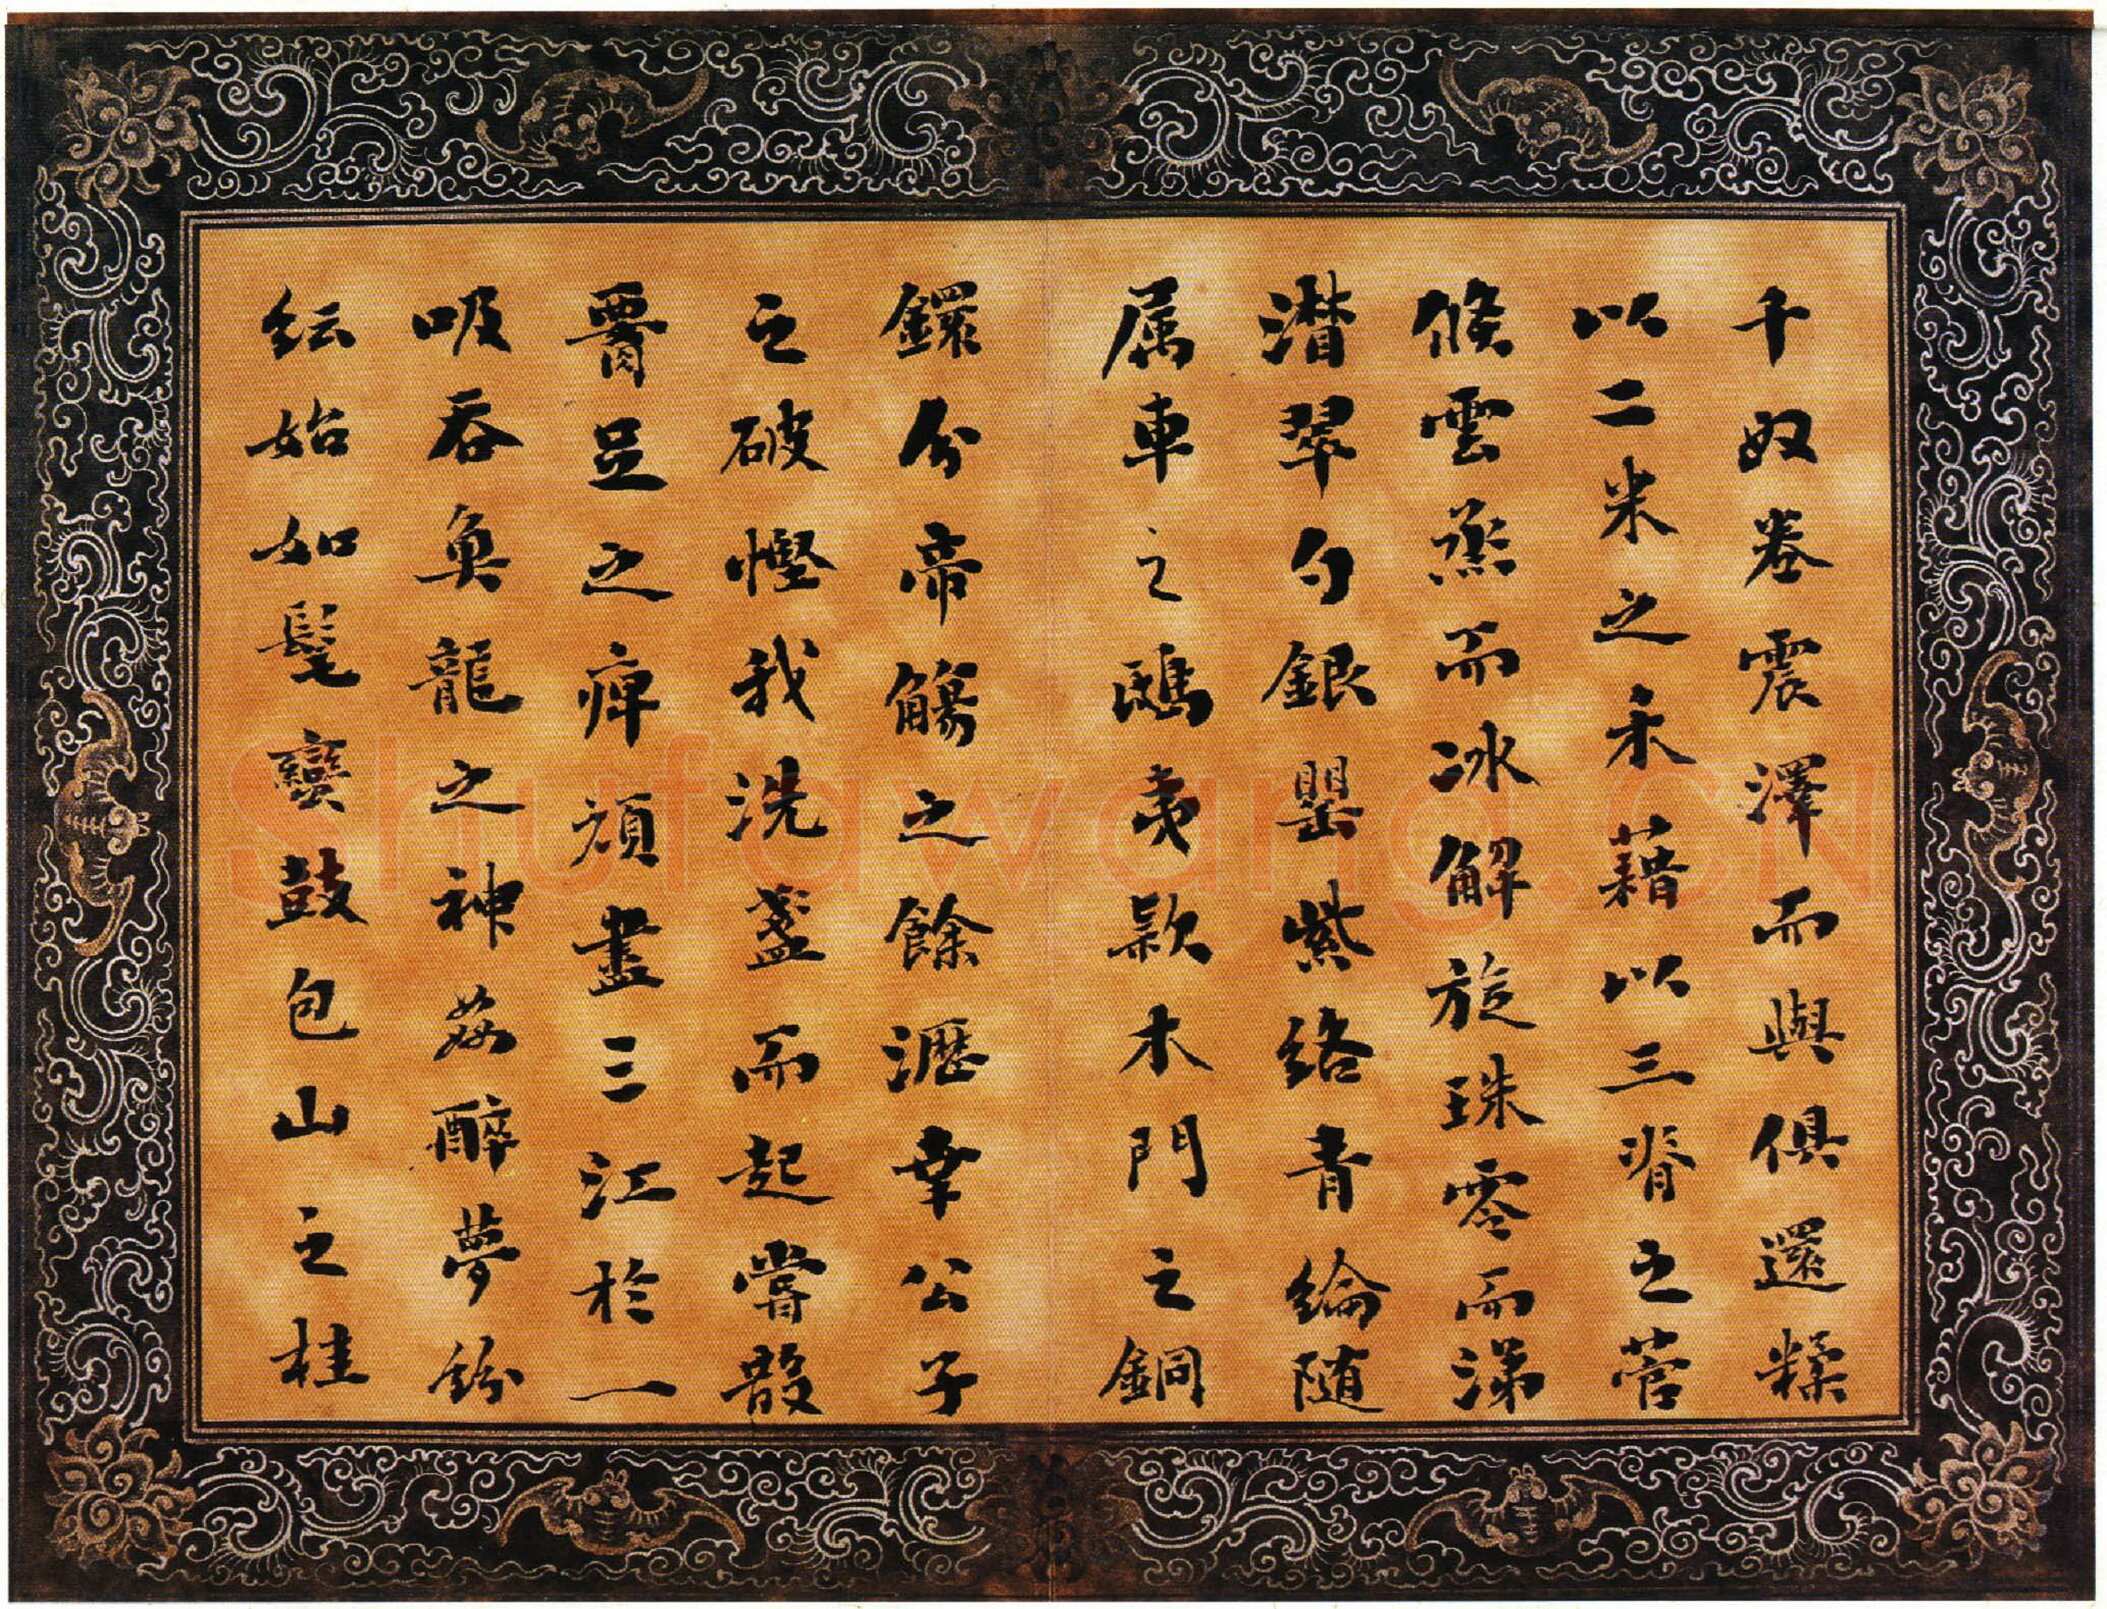 千奴卷震澤而與俱還糅
以二米之禾藉以三脊之菅
倏雲烝而冰解旋珠零而涕
潸翠勺銀罌紫絡青綸随
属車之鴟夷款木門之銅
鐶分帝觴之餘瀝幸公子
之破慳我洗盞而起嘗散
腰足之痺頑盡三江於一
吸吞魚龍之神姦醉夢紛
紜始如髦蠻鼓包山之桂
Shufawang.CN